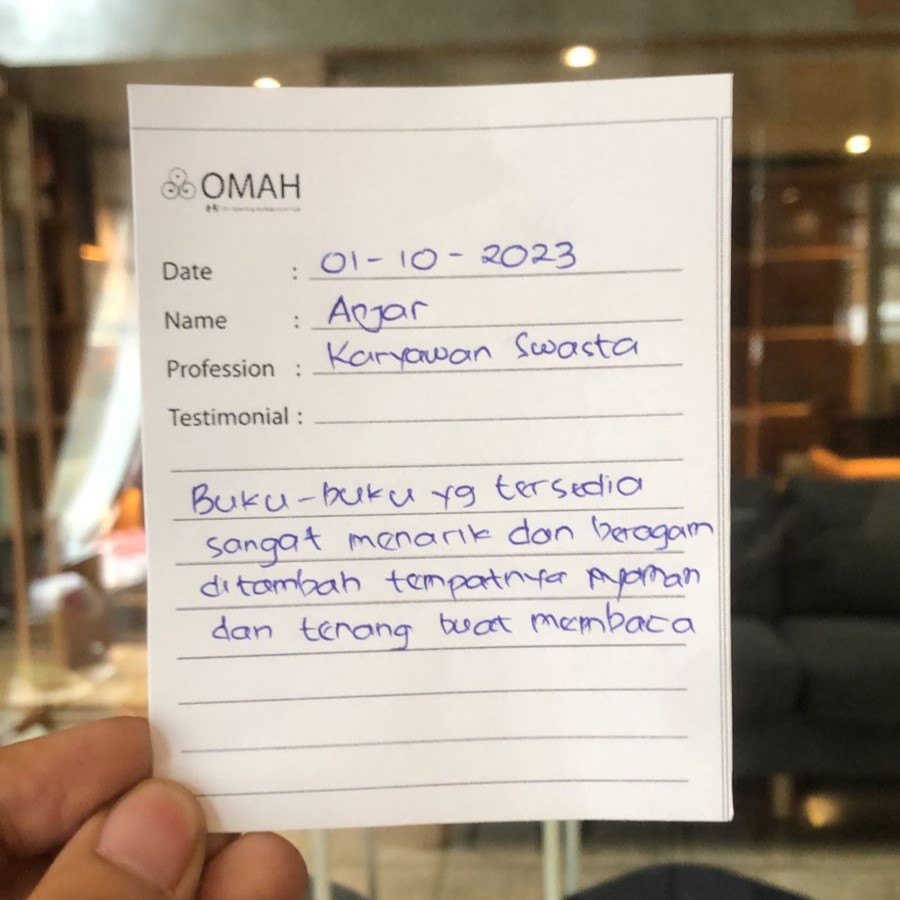 OMAH
Date : 01-10-2023
Name : Anjar
Profession : Karyawan Swasta
Testimonial :
Buku-buku yg tersedia
sangat menarik dan beragam
ditambah tempatnya nyaman
dan tenang buat membaca